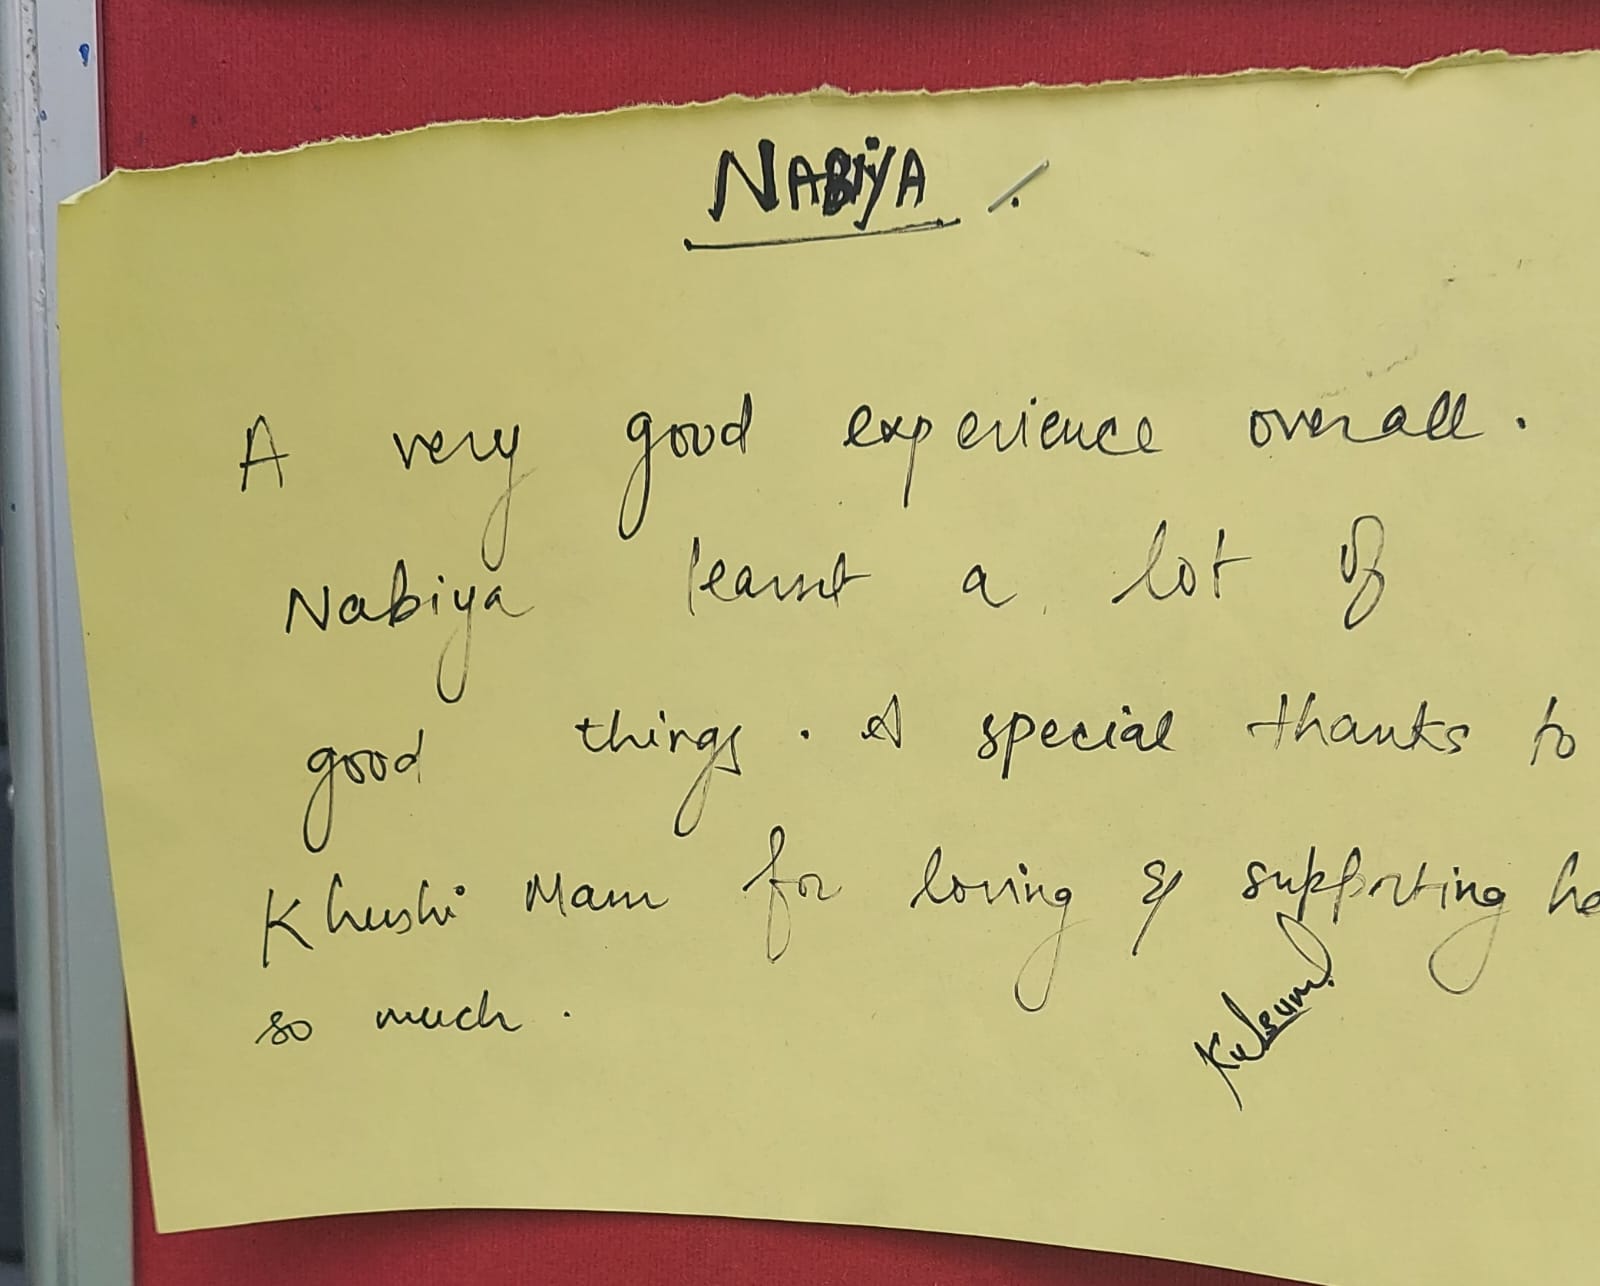 NABIYA
A very good experience overall.
Nabiya learnt a lot of
good things. A special thanks to
Khushi Mam for loving & supporting he
so much.
Kulsum